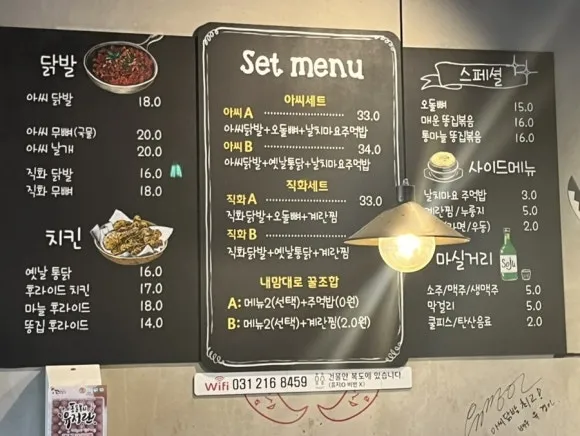 닭발
아씨 닭발 18.0
아씨 무뼈(국물) 20.0
아씨 날개 20.0
직화 닭발 16.0
직화 무뼈 18.0
치킨
옛날 통닭 16.0
후라이드 치킨 17.0
마늘 후라이드 18.0
똥집 후라이드 14.0
Set menu
아씨세트
아씨 A 33.0
아씨닭발+오돌뼈+날치마요주먹밥
아씨 B 34.0
아씨닭발+옛날통닭+날치마요주먹밥
직화세트
직화 A 33.0
직화닭발+오돌뼈+계란찜
직화 B
직화닭발+옛날통닭+계란찜
내맘대로 꿀조합
A: 메뉴2(선택)+주먹밥(0원)
B: 메뉴2(선택)+계란찜(2.0원)
스페셜
오돌뼈 15.0
매운 똥집볶음 16.0
통마늘 똥집볶음 16.0
사이드메뉴
날치마요 주먹밥 3.0
계란찜/누룽지 5.0
(라면/우동) 2.0
마실거리
Soju
소주/맥주/생맥주 5.0
막걸리 5.0
쿨피스/탄산음료 2.0
Wifi 031 216 8459
건물안 복도에 있습니다
(휴지O 비번 X)